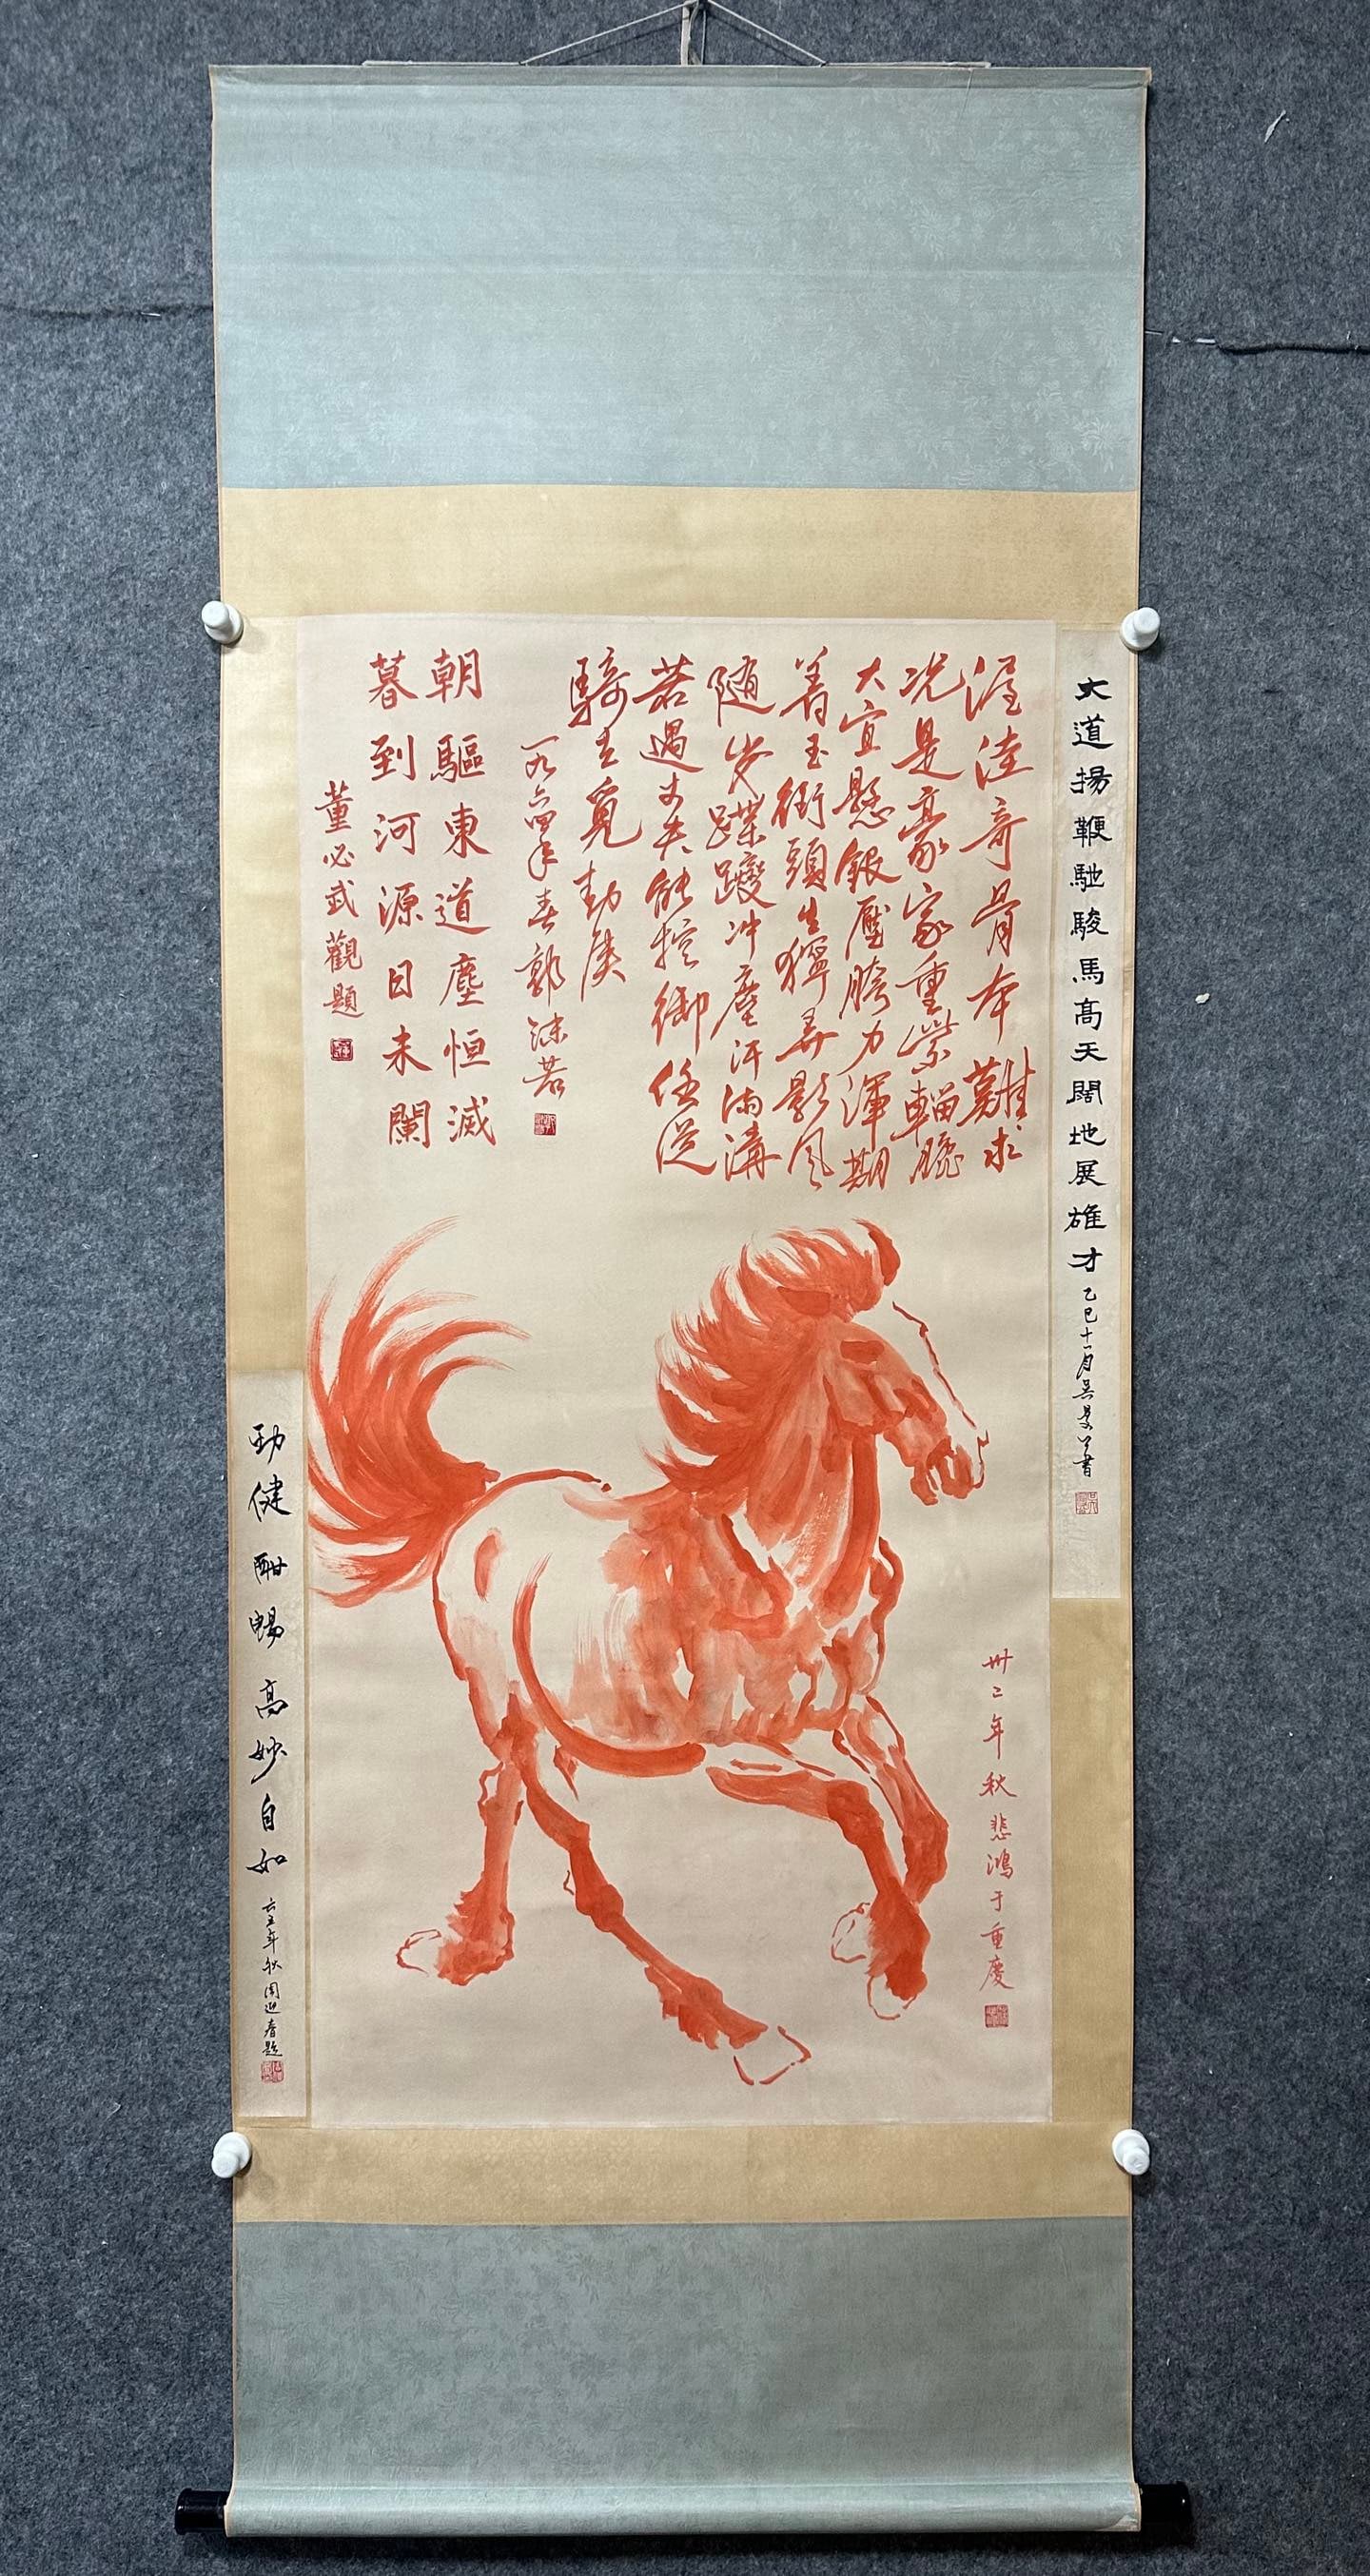 渥洼奇骨本難求
況是豪家重紫騮膘
大宜懸銀壓胯力渾期
著玉銜頭生獰弄影風
隨步蹀躞冲塵汗滿溝
若遇丈夫能控御任從
騎去覓勅侯
一九六四年春郭沫若
朝驅東道塵恒滅
暮到河源日未闌
董必武觀題
大道揚鞭馳駿馬高天闊地展雄才
乙巳十一月吳
書
勁健酣暢高妙自如
六五年秋周迎春題
卅二年秋悲鴻于重慶